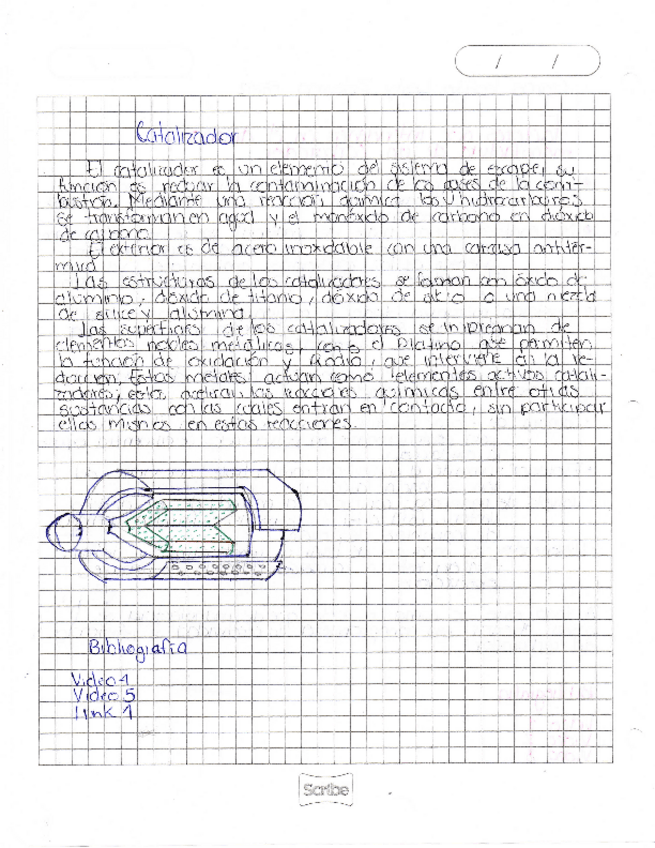 / /
Catalizador
El catalizador es un elemento del sistema de escape, su
función es reducir la contaminación de los gases de la com-
bustión. Mediante una reacción química los hidrocarburos
se transforman en agua y el monóxido de carbono en dióxido
de carbono.
El exterior es de acero inoxidable con una carcasa antitér-
mica.
Las estructuras de los catalizadores se forman con óxido de
aluminio, dióxido de titanio, dióxido de silicio o una mezcla
de sílice y alúmina.
Las superficies de los catalizadores se impregnan de
elementos nobles metálicos, como el Platino que permiten
la función de oxidación y Rodio, que interviene en la re-
ducción. Estos metales actúan como elementos activos catali-
zadores; esto, aceleran las reacciones químicas entre otras
sustancias con las cuales entran en contacto, sin participar
ellos mismos en estas reacciones.
Bibliografía
Video 4
Video 5
Link 1
Scribe